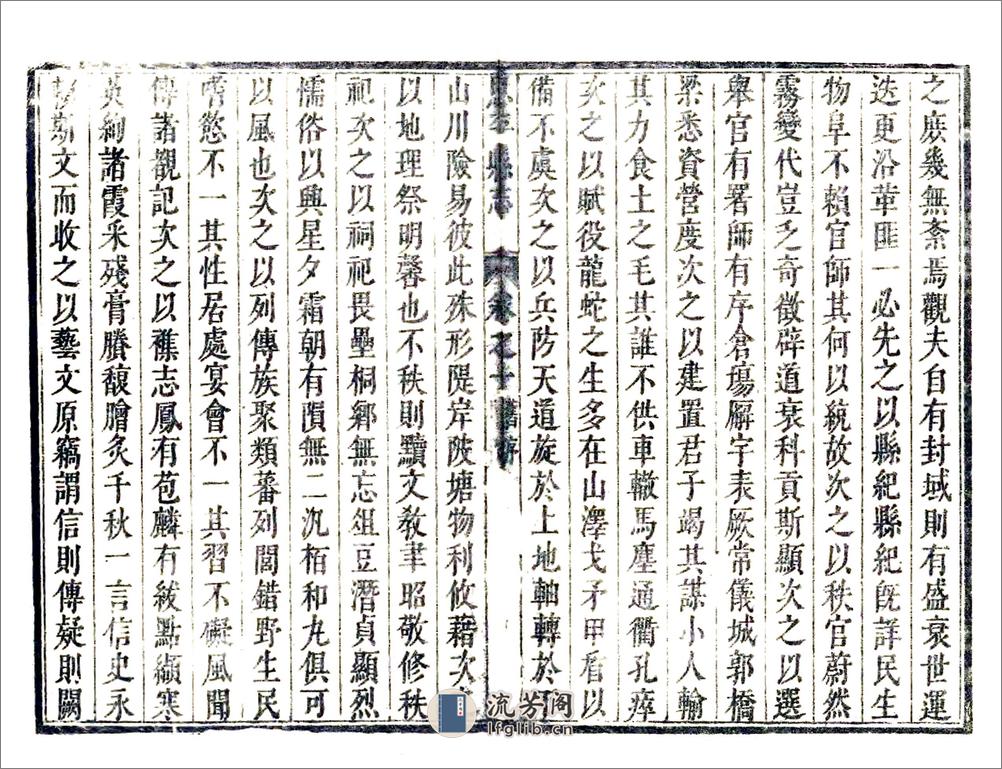 之庶幾無紊焉觀夫自有封域則有盛衰世運
迭更沿革匪一必先之以縣紀縣紀既詳民生
物阜不賴官師其何以統故次之以秩官蔚然
霧變代豈乏奇徵辟道衰科貢斯顯次之以選
舉官有署師有序倉瘍廨宇表厥常儀城郭橋
梁悉資營度次之以建置君子竭其謀小人輸
其力食土之毛其誰不供車轍馬塵通衢孔瘁
次之以賦役龍蛇之生多在山澤戈矛甲盾以
備不虞次之以兵防天道旋於上地軸轉於
縣志
卷之十
舊序
山川險易彼此殊形隄岸陂塘物利攸藉次
以地理祭明馨也不秩則黷文敎聿昭敬修秩
祀次之以祠祀畏壘桐鄉無忘俎豆潛貞顯烈
懦俗以興星夕霜朝有隕無二汎栢和丸俱可
以風也次之以列傳族聚類蕃列閭錯野生民
嗜慾不一其性居處宴會不一其習不礙風聞
傳諸觀記次之以雜志鳳有苞麟有紱點纈寒
英絢諸霞采殘膏賸馥膾炙千秋一言信史永
斯文而收之以藝文原竊謂信則傳疑則闕
流芳阁
lfglib.cn